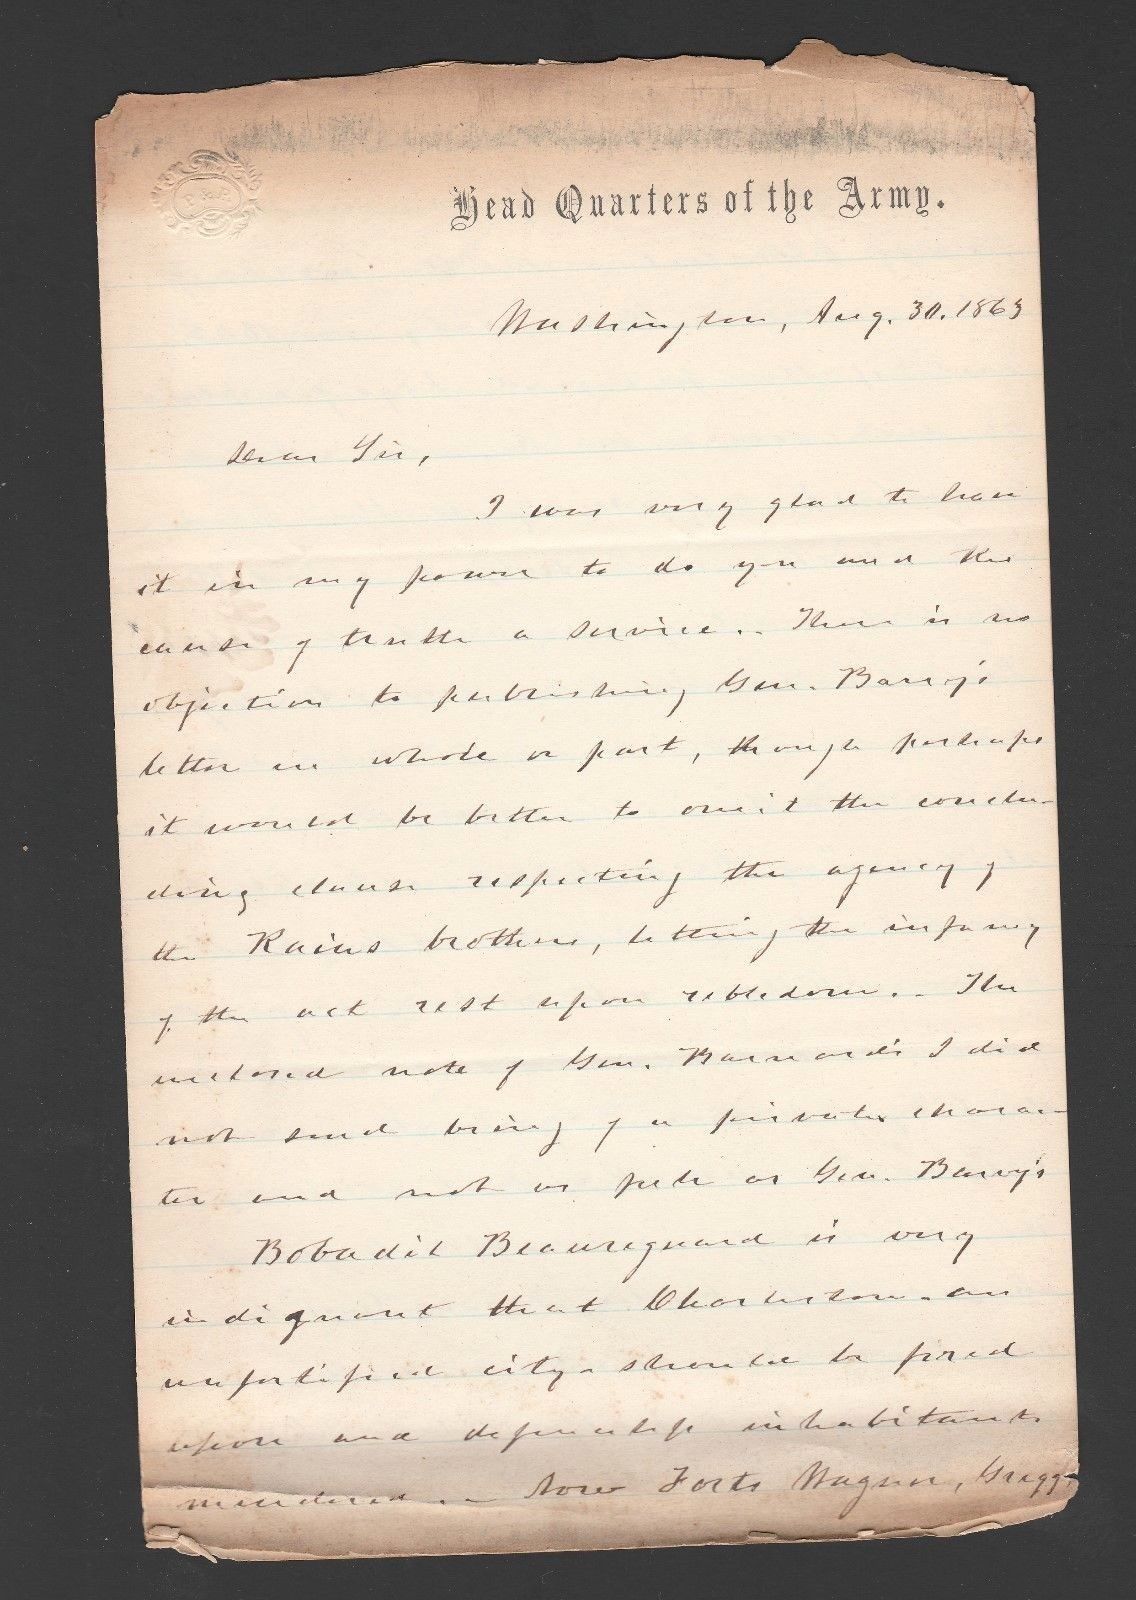 Head Quarters of the Army.
Washington, Aug. 30. 1863
Dear Sir,
I was very glad to have
it in my power to do you and the
cause of truth a service. - There is no
objection to publishing Gen. Barry's
letter in whole or part, though perhaps
it would be better to omit the conclu-
ding clause respecting the agency of
the Rains brothers, letting the infamy
of the act rest upon rebeldom. - The
enclosed note of Gen. Barnard's I did
not send being of a private charac-
ter and not as full as Gen. Barry's
Bobadil Beauregard is very
indignant that Charleston - an
unfortified city - should be fired
upon and defenceless inhabitants
murdered. - Now Forts Wagner, Gregg,